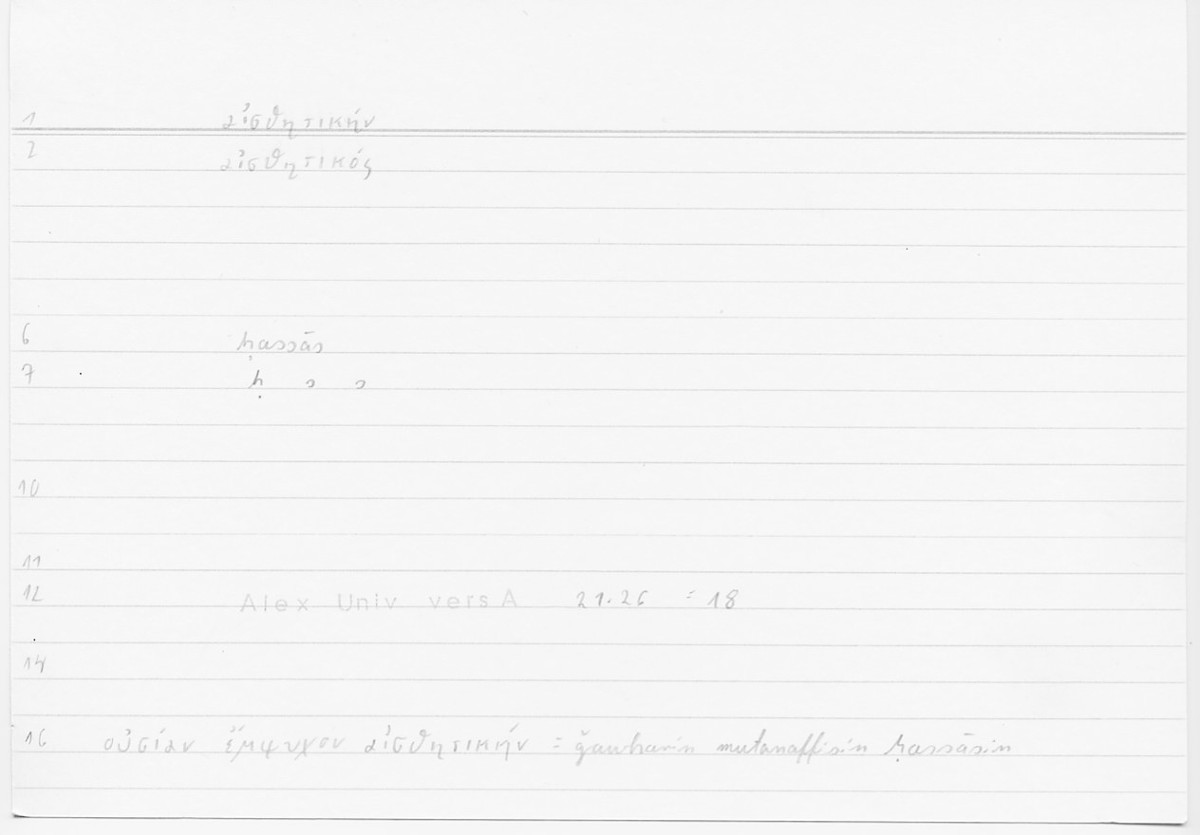 1 αἰσθητικήν
2 αἰσθητικός
6 ḥassās
7 ḥ s s
10
11
12 Alex Univ vers A 21.26 = 18
14
16 οὐσίαν ἔμψυχον αἰσθητικήν = ǧauharin mutanaffisin ḥassāsin